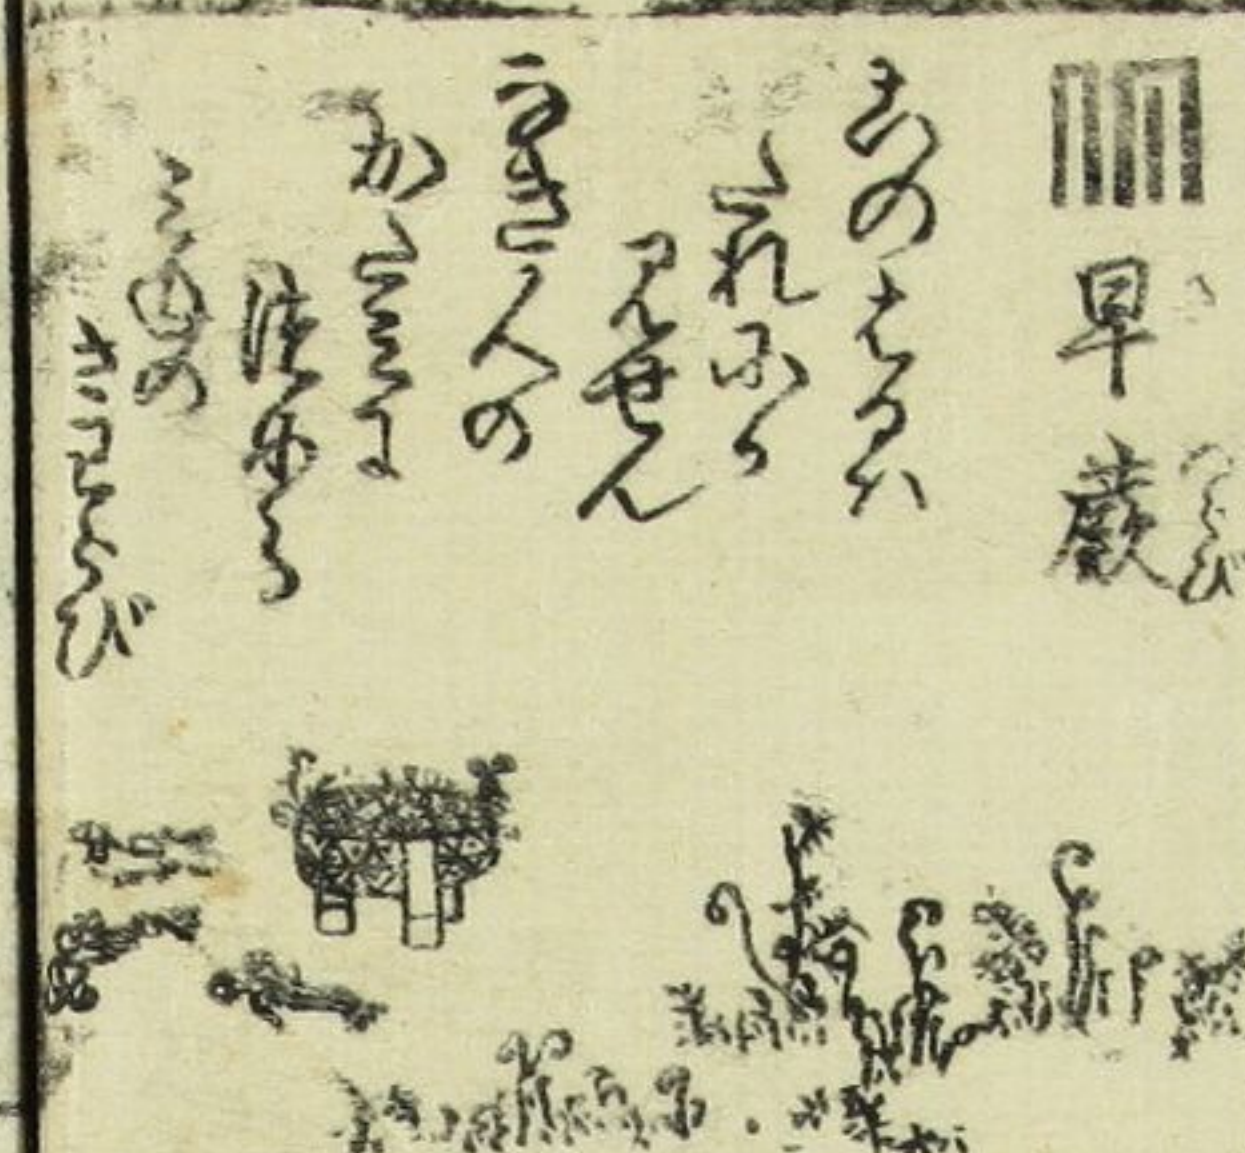 早蕨
さわらび
このはるハ
たれにか
見せん
なき人の
かたみに
つめる
みねの
さわらび